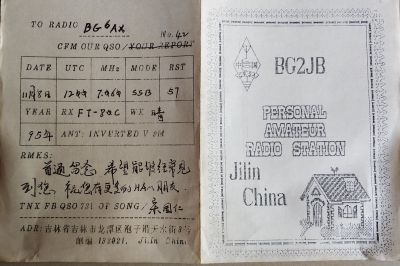 TO RADIO BG6AX
No. 42
CFM OUR QSO/YOUR REPORT
DATE UTC MHz MODE RST
11月8日 SSB 57
YEAR RX FT-80C WX 晴
95年 ANT: INVERTED V 9M
RMKS:
首通留念, 希望能够经常见
到您,
TNX FB QSO 73! OP SONG/ 桑国仁
ADR: 吉林省吉林市龙潭区
邮编 132021, Jilin China
BG2JB
PERSONAL
AMATEUR
RADIO STATION
Jilin
China